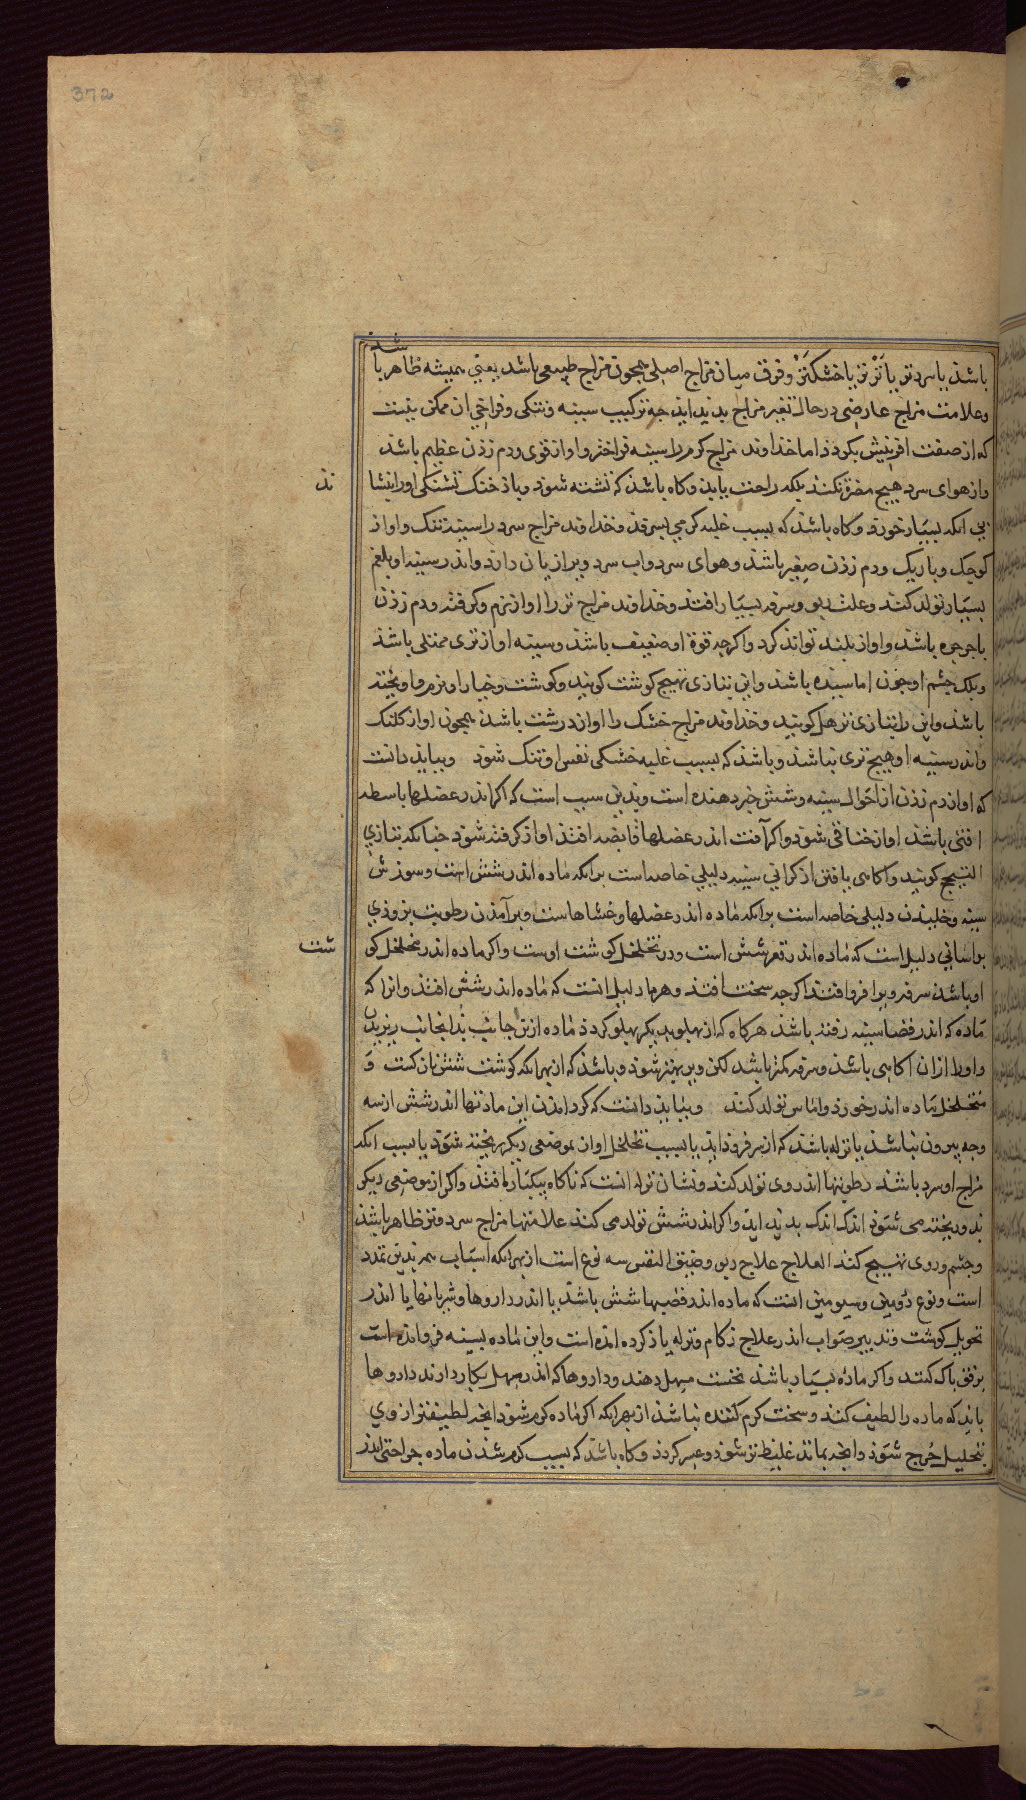 372
شد
باشذ یا سردتر یا تَرْ تر یا خشکتَرْ و فرق میان مزاج اصلی همچون مزاج طبیعی باشد یعنی همیشه ظاهر با
و علامت مزاج عارضی در حال تغیر مزاج بدید اید جه ترکیب سینه و تنکی و فراخی ان ممکن نیست
که از صفت افرینش بکردذ اما خذاوند مزاج کرم را سینه فراختر و اواز قوی و دم زذن عظیم باشد
و از هوای سرد هیج مضرة نکند بلکه راحت یابذ و کاه باشذ که تشنه شوذ و باذ خنک تشنکی او را بنشا
نذ
بی انکه بسیار خورد و کاه باشذ که بسبب غلبه کرمی بسرفذ و خذاوند مزاج سرد را سینه تنک و اواز
کوجک و باریک و دم زذن صغیر باشذ و هوای سرد و اب سرد ویرا زیان دارد و اندر سینه او بلغم
بسیار تولد کند و علت ربو و سرفه بسیار افتذ و خذاوند مزاج تر را اواز نرم و کرفته و دم زذن
با خرخره باشد و اواز بلند نتواند کرد و اکرجه قوة او ضعیف باشد و سینه او از تری ممتلی باشذ
و بلک جشم او جون اماسیذه باشذ و این بتازی تهیج کوشت کویند و کوشت و خیار او نرم و اویخته
باشذ و این را بتازی ترهل کویند و خذاوند مزاج خشک را اواز درشت باشذ همچون اواز کلنک
و اندر سینه او هیج تری نباشذ و باشذ که بسبب غلبه خشکی نفس او تنک شوذ و بباید دانست
که اواز دم زذن از احوال سینه و شش خبر دهنده است و بدین سبب است که اکر اندر عضلها باسطه
افتی باشذ اواز خناقی شوذ و اکر آفت اندر عضلها قابضه افتذ اواز کرفته شوذ جنانکه بتازی
النبیح کویند و اکاهی یافتن از کرانی سینه دلیلی خاصه است بر انکه ماده اندر شش است و سوزش
سینه و خلیذن دلیلی خاصه است بر انکه ماده اندر عضلها و غشاهاست و بر آمذن رطوبت بزوذی
و اسانی دلیل است که ماده اندر قعر شش است و در تخلخل کوشت اوست و اکر ماده اندر تخلخل کو
شت
او باشذ سرفه و ربو افزوا فتذ اکرجه سخت افتذ و هربار دلیل انست که ماده اندر شش افتذ و انرا که
ماده که اندر فضا سینه رفته باشذ هرکاه که از بهلو ببهلو دیکر بهلو کردذ ماده ازین جانب بذان جانب ریزیدن
و او را ازان اکاهی باشذ و سرفه کمتر باشد لکن وی بهتر شوذ و باشذ که از بهر انکه کوشت شش نازکست و
متخلخل ماده اندر خورذ و اماس تولد کند و ببایذ دانست که کرد امذن این مادتها اندر شش از سه
وجه بیرون نباشذ یا نزله باشذ که از سر فروذ ایذ یا بسبب تخلخل او از موضعی دیکر ریخته شوذ یا بسبب انکه
مزاج او سرد باشذ رطوبتها اندر وی تولد کند و نشان نزله انست که ناکاه بیکبار افتذ و اکر از موضعی دیکر
بذو ریخته می شوذ اندک اندک بدید ایذ و اکر اندر شش تولد می کند علامتها مزاج سرد و تر ظاهر باشذ
و جشم و روی تهیج کند العلاج علاج ربو و ضیق النفس سه نوع است از بهر انکه اسباب همه بدین عدد
است و نوع دومین و سیومین انست که ماده اندر قصبها شش باشذ یا اندر داروها و شریانها یا اندر
تحویل کوشت و تدبیر صواب اندر علاج زکام و نزله یاذ کرده امذه است و این ماده بسینه فروامذه است
برفق باک کنند و اکر ماده بسیار باشذ نخست مسهل دهند و داروها که اندر مسهل بکار دارند داروها
باید که ماده را لطیف کنند و سخت کرم کننده نباشذ از بهر انکه اکر ماده کرم شوذ انجه لطیفتر از وی
بتحلیل خرج شوذ و انجه بماند غلیظ تر شوذ و عسر کردذ و کاه باشذ که بسبب کرم شذن ماده جراحتی اندر